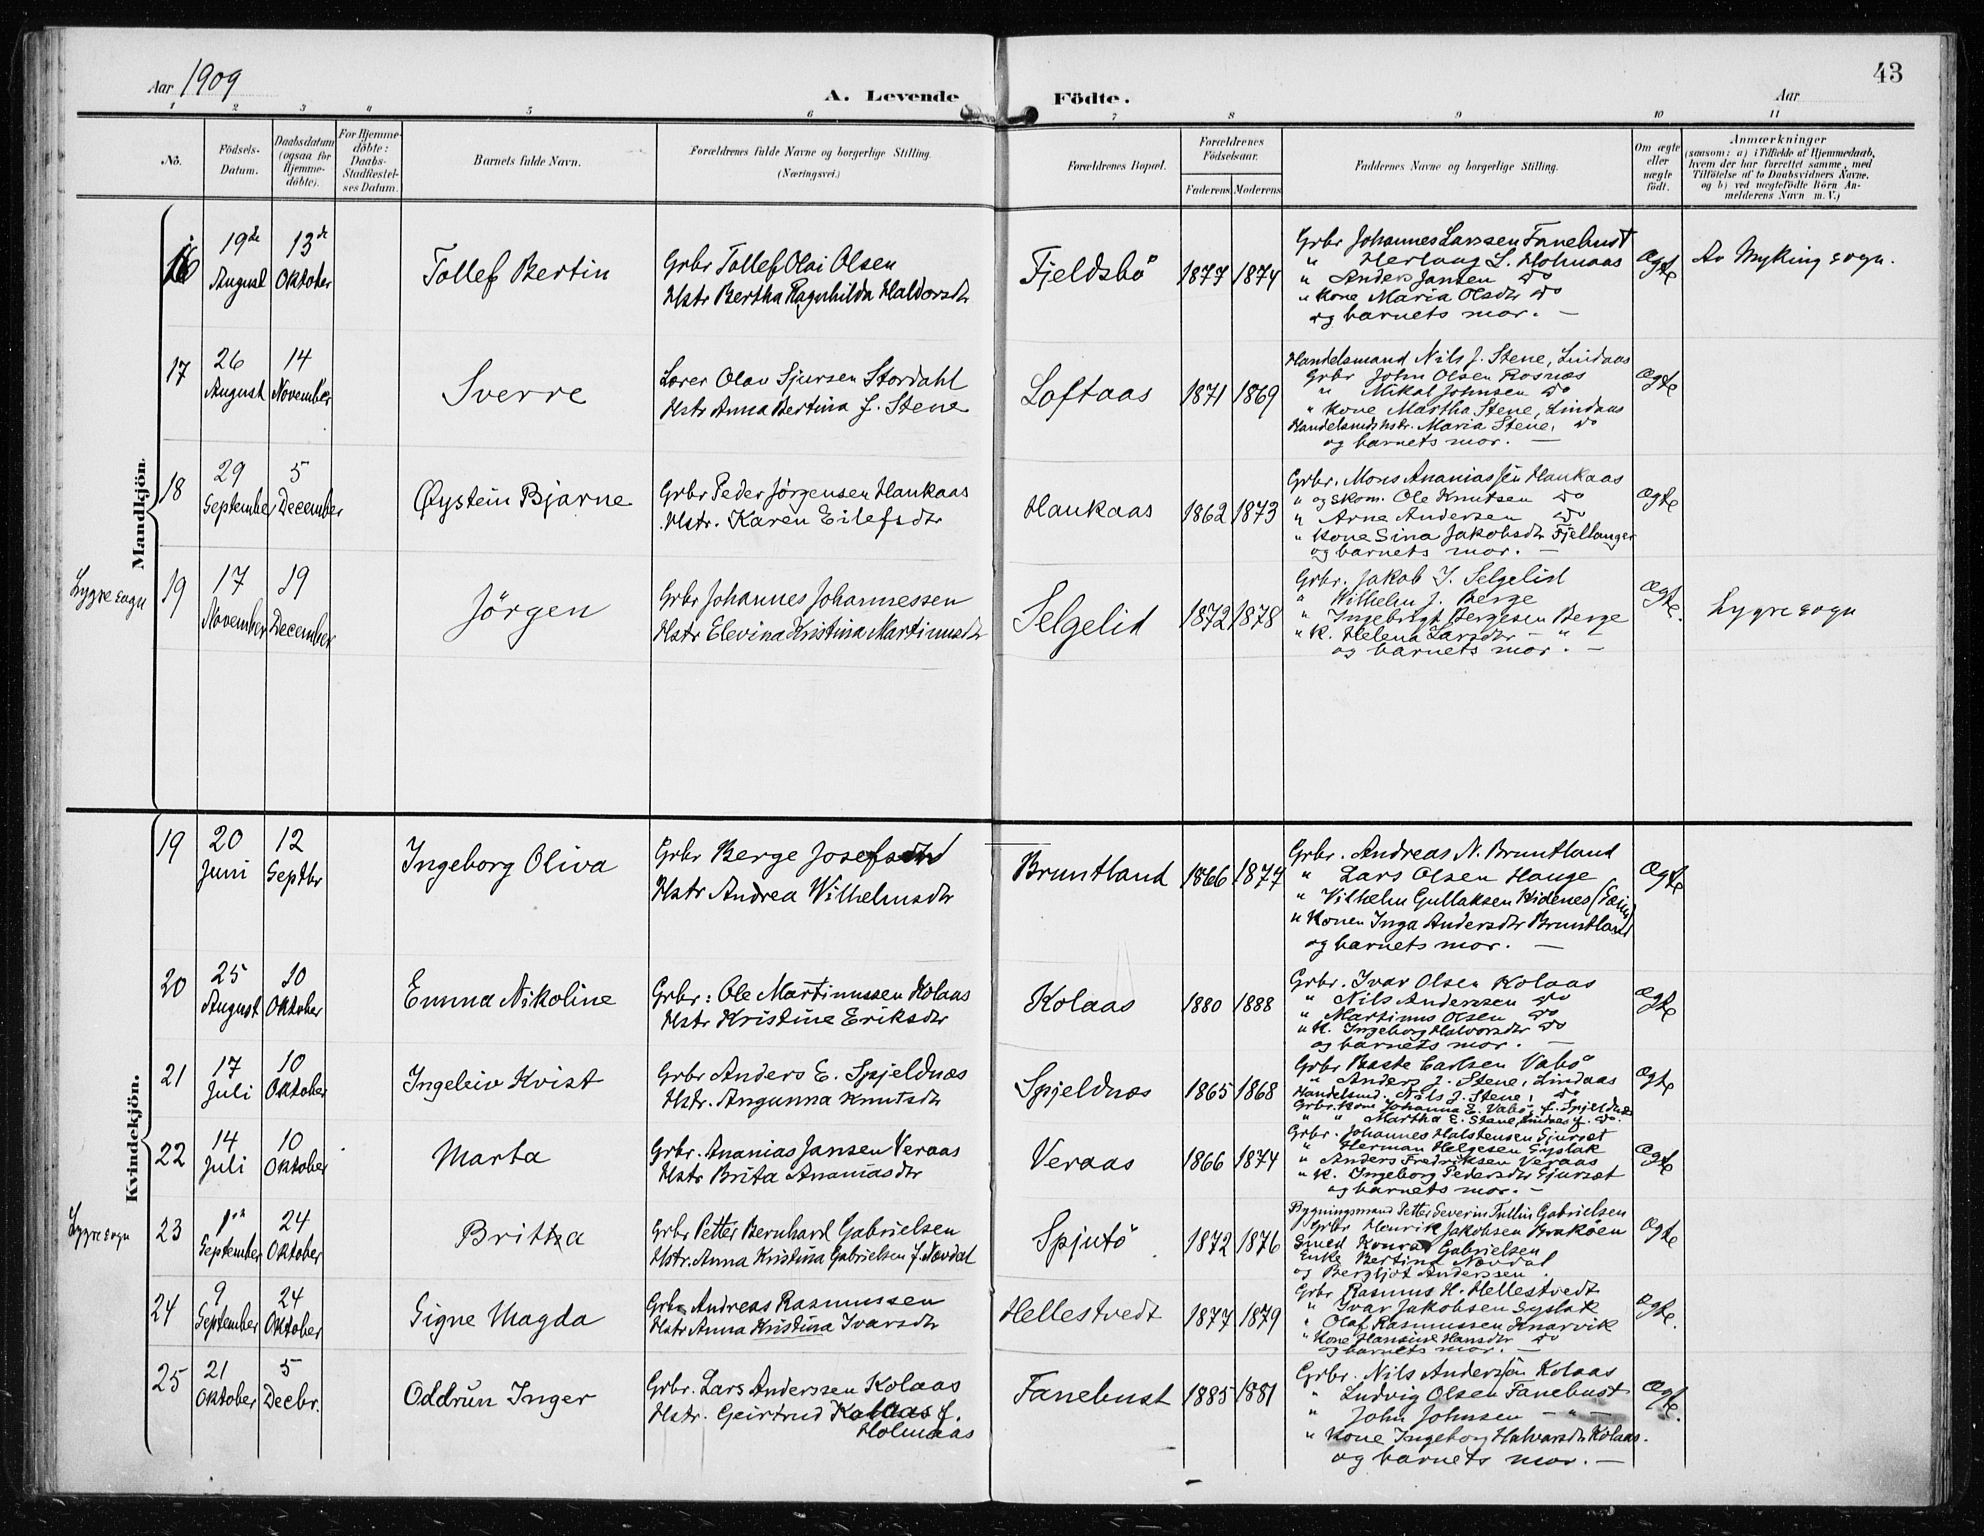 Aar 1909
A. Levende Födte.
Aar
43
1 2 3 4 5 6 7 8 9 10 11
No.
Födsels-Datum.
Daabsdatum (ogsaa for Hjemme-döbte).
For Hjemme-döbte: Daabs-Stadfæstel-ses Datum.
Barnets fulde Navn.
Forældrenes fulde Navne og borgerlige Stilling.
(Næringsvei.)
Forældrenes Bopæl.
Forældrenes Födselsaar.
Faderens Moderens
Faddernes Navne og borgerlige Stilling.
Om ægte eller uægte födt.
Anmærkninger
(saasom: a) i Tilfælde af Hjemmedaab,
hvem der har forrettet samme, med
Tilföielse af to Daabsvidners Navne.
og b) ved uægtefödte Börn An-
melderens Navn m. V.)
Mandkjön.
16
19de August
13de Oktober
Tollef Bertin
Grbr Tollef Olai Olsen
Hstr Bertha Ragnhilda Haldorsdtr
Fjeldsbö
1877 1874
Grbr Johannes Larssen Fanebust
" Herlaug L. Holmaas
" Anders Jansen do
" Kone Maria Olsdtr do
og barnets mor. —
Ægte
Av Myking sogn.
17
26 August
14 November
Sverre
Lærer Olav Sjursen Stordahl
Hstr Anna Bertina f. Stene
Loftaas
1871 1869
Handelsmand Nils J. Stene, Lindaas
Grbr John Olsen Rosnæs
" Mikal Johnsen do
" Kone Martha Stene, Lindaas
Handelsmds hstr. Maria Stene, do
og barnets mor. —
Ægte
18
29 September
5 December
Øystein Bjarne
Grbr Peder Jørgensen Haukaas
Hstr. Karen Eilefsdtr
Haukaas
1862 1873
Grbr. Mons Ananiassen Haukaas
" og skom. Ole Knutsen do
" Arne Andersen do
" Kone Sina Jakobsdtr Fjellanger
og barnets mor. —
Ægte
Lygre sogn
19
17 November
19 December
Jörgen
Grbr Johannes Johannessen
Hstr Elevina Kristina Martinusdtr
Selgelid
1872 1878
Grbr. Jakob J. Selgelid
" Wilhelm J. Berge
" Ingebrigt Bergesen Berge
" K. Helena Larsdtr — " —
og barnets mor. —
Ægte.
Lygre sogn
Kvindekjön.
19
20 Juni
12 Septbr
Ingeborg Oliva
Grbr Berge Josefsen
Hstr Andrea Wilhelmsdtr
Bruntland
1866 1877
Grbr. Andreas N. Bruntland
" Lars Olsen Hauge
" Vilhelm Gullaksen Hidenes
" Konen Inga Andersdtr Bruntland
og barnets mor. —
Ægte
20
25 August
10 Oktober
Emma Nikoline
Grbr: Ole Martinussen Kolaas
Hstr Kristine Eriksdtr
Kolaas
1880 1888
Grbr. Ivar Olsen Kolaas
" Nils Anderssen do
" Martinus Olsen do
" K. Ingeborg Halvorsdtr do
og barnets mor. —
Ægte
21
17 Juli
10 Oktober
Ingeleiv Kvist
Grbr Anders E. Spjeldnæs
Hstr. Angunna Knutsdtr
Spjeldnæs
1865 1868
Grbr Baste Carlsen Vabö
" Anders J. Stene, Lindaas
Handelsmd. Nils J. Stene, do
Grbr. kone Johanna E. Vabö, f. Spjeldnæs
" " Martha E. Stene, Lindaas f. do.
Ægte
22
14 Juli
10 Oktober
Marta
Grbr. Ananias Jansen Veraas
Hstr Brita Ananiasdtr
Veraas
1866 1874
Grbr. Johannes Halstensen Gjurset
" Herman Helgesen Syslak
" Anders Fredriksen Veraas
" K. Ingeborg Pedersdtr Gjurset
og barnets mor. —
Ægte
Lygre sogn
23
1ste September
24 Oktober
Britta
Grbr Petter Bernhard Gabrielsen
Hstr. Anna Kristina Gabrielsen f. Növdal
Spjutö
1872 1876
Bygningsmand Petter Severin Tullin Gabrielsen
Grbr Henrik Jakobsen Brakøen
Smed Konrad Gabrielsen
Enke Bertine Növdal
og Bergljot Anderssen.
Ægte
24
9 September
24 Oktober
Signe Magda
Grbr Andreas Rasmussen
Hstr Anna Kristina Ivarsdtr
Hellestvedt
1877 1879
Grbr Rasmus H. Hellestvedt
" Ivar Jakobsen Syslak
" Olaf Rasmussen Knarvik
" Kone Hansine Hansdtr do
og barnets mor. —
Ægte.
25
21 Oktober
5 Decbr.
Oddrun Inger
Grbr. Lars Anderssen Kolaas
Hstr. Geirtrud Kolaas f.
Holmaas
Fanebust
1885 1881
Grbr. Nils Anderssen Kolaas
" Ludvig Olsen Fanebust
" John Johnsen — " —
" Kone Ingeborg Halvorsdtr Kolaas.
og barnets mor. —
Ægte.